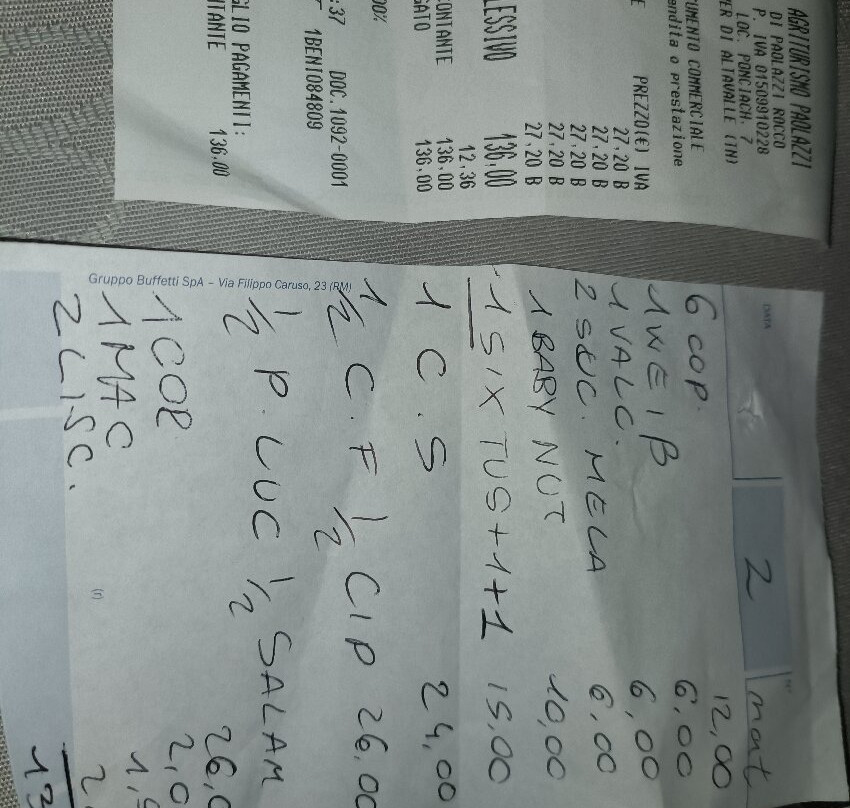 AGRITURISMO PAOLAZZI
DI PAOLAZZI ROCCO
P. IVA 01509910228
LOC. PONCIACH, 7
VER DI ALTAVALLE (TN)
UMENTO COMMERCIALE
endita o prestazione
E PREZZO(€) IVA
27,20 B
27,20 B
27,20 B
27,20 B
27,20 B
LESSIVO 136,00
12,36
ONTANTE 136,00
GATO 136,00
00%
:37 DOC.1092-0001
1BENI084809
GLIO PAGAMENTI:
NTANTE 136,00
DATA
2
N°
mat
6 COP. 12,00
1 WEIβ 6,00
1 VALC. 6,00
2 SUC. MELA 6,00
1 BABY NUT 10,00
1 SIXTUS+1+1 15,00
1 C.S 24,00
1/2 C.F 1/2 CIP 26,00
1/2 P. LUC 1/2 SALAM 26,0
1 COP 2,0
1 MAC 1,
2 LISC. 2
13
Gruppo Buffetti SpA – Via Filippo Caruso, 23 (RM)